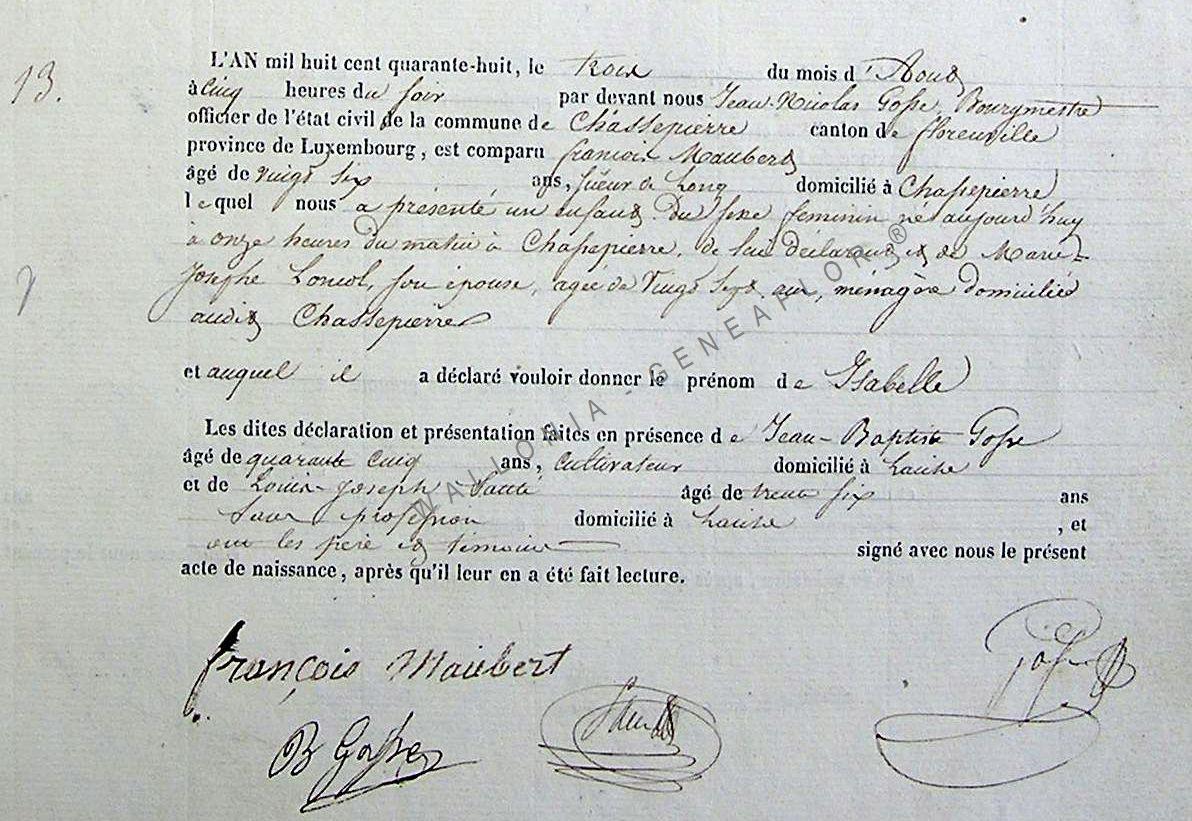 13.
L'AN mil huit cent quarante-huit, le trois du mois d'Aout
à Cinq heures du soir par devant nous Jean-Nicolas Gosse, Bourgmestre
officier de l'état civil de la commune de Chassepierre canton de florenville
province de Luxembourg, est comparu francois Maubert
âgé de vingt six ans, scieur de Long domicilié à Chassepierre
lequel nous a présenté un enfant du sexe feminin né aujourd'huy
à onze heures du matin à Chassepierre, de lui déclarant et de Marie-
Josephe, son épouse, agée de Vingt sept ans, ménagère domiciliée
audit Chassepierre
et auquel il a déclaré vouloir donner le prénom de Isabelle
Les dites déclaration et présentation faites en présence de Jean-Baptiste Gosse
âgé de quarante Cinq ans, cultivateur domicilié à Laiche
et de Louis-Joseph âgé de trente six ans
Sans profession domicilié à Laiche, et
ont les père et témoins signé avec nous le présent
acte de naissance, après qu'il leur en a été fait lecture.
françois Maubert
Gosse
B Gosse
WALLONIA - GENEAPLOR ®